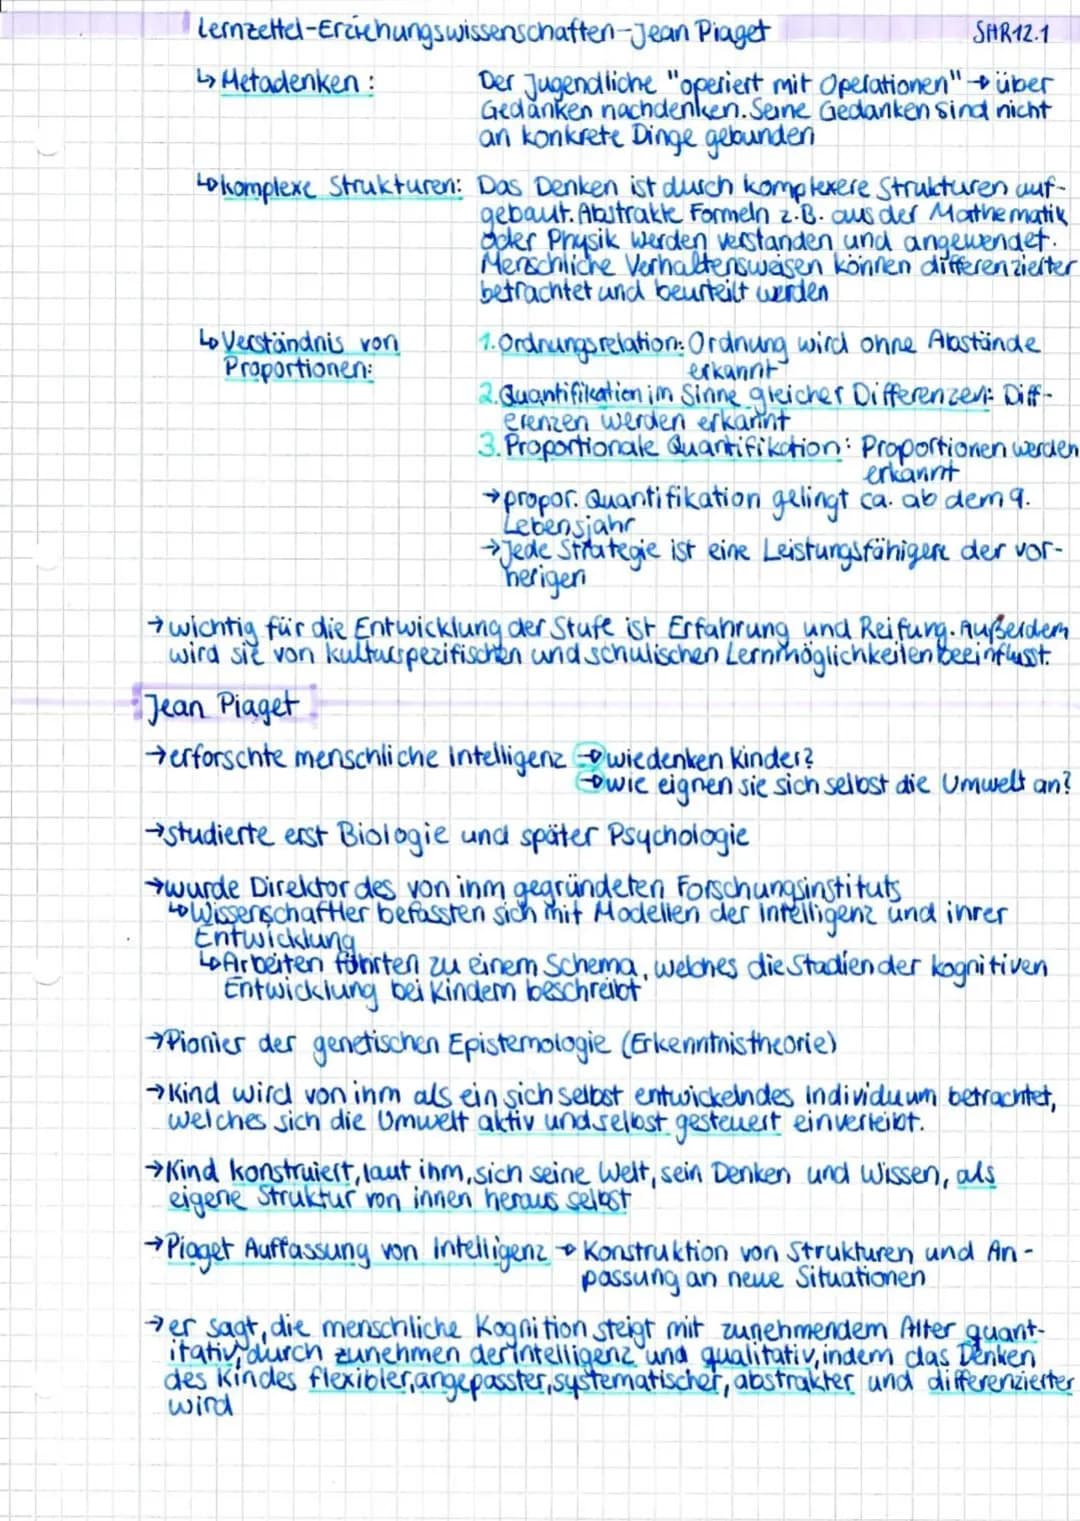 Lernzettel-Erziehungswissenschaften-Jean Piaget SHR12.1
↳ Metadenken: Der Jugendliche "operiert mit Operationen" → über
Gedanken nachdenken. Seine Gedanken sind nicht
an konkrete Dinge gebunden
↳ komplexe Strukturen: Das Denken ist durch komplexere Strukturen auf-
gebaut. Abstrakte Formeln z.B. aus der Mathematik
oder Physik werden verstanden und angewendet.
Menschliche Verhaltensweisen können differenzierter
betrachtet und beurteilt werden
↳ Verständnis von
Proportionen:
1. Ordnungsrelation: Ordnung wird ohne Abstände
erkannt
2. Quantifikation im Sinne gleicher Differenzen: Diff-
erenzen werden erkannt
3. Proportionale Quantifikation: Proportionen werden
erkannt
→ propor. Quantifikation gelingt ca. ab dem 9.
Lebensjahr
→ Jede Strategie ist eine Leistungsfähigere der vor-
herigen
→ wichtig für die Entwicklung der Stufe ist Erfahrung und Reifung. Außerdem
wird sie von kulturspezifischen und schulischen Lernmöglichkeiten beeinflusst.
Jean Piaget
→ erforschte menschliche Intelligenz → wie denken Kinder?
→ wie eignen sie sich selbst die Umwelt an?
→ studierte erst Biologie und später Psychologie
→ wurde Direktor des von ihm gegründeten Forschungsinstituts
↳ Wissenschaftler befassten sich mit Modellen der Intelligenz und ihrer
Entwicklung
↳ Arbeiten führten zu einem Schema, welches die Stadien der kognitiven
Entwicklung bei Kindern beschreibt
→ Pionier der genetischen Epistemologie (Erkenntnistheorie)
→ Kind wird von ihm als ein sich selbst entwickelndes Individuum betrachtet,
welches sich die Umwelt aktiv und selbst gesteuert einverleibt.
→ Kind konstruiert, laut ihm, sich seine Welt, sein Denken und Wissen, als
eigene Struktur von innen heraus selbst
→ Piaget Auffassung von Intelligenz → Konstruktion von Strukturen und An-
passung an neue Situationen
→ er sagt, die menschliche Kognition steigt mit zunehmendem Alter quant-
itativ, durch zunehmen der Intelligenz und qualitativ, indem das Denken
des Kindes flexibler, angepasster, systematischer, abstrakter und differenzierter
wird